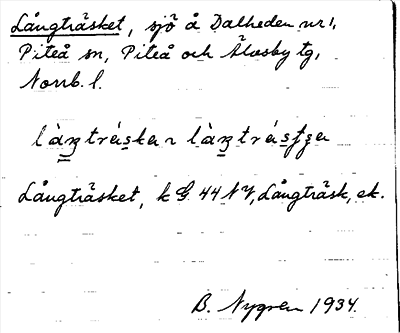 Långträsket, sjö å Dalheden nr 1,
Piteå sn, Piteå och Älvsby tg,
Norrb. l.
Långträsket, k G 44 NV, Långträsk, ek.
B. Nygren 1934.